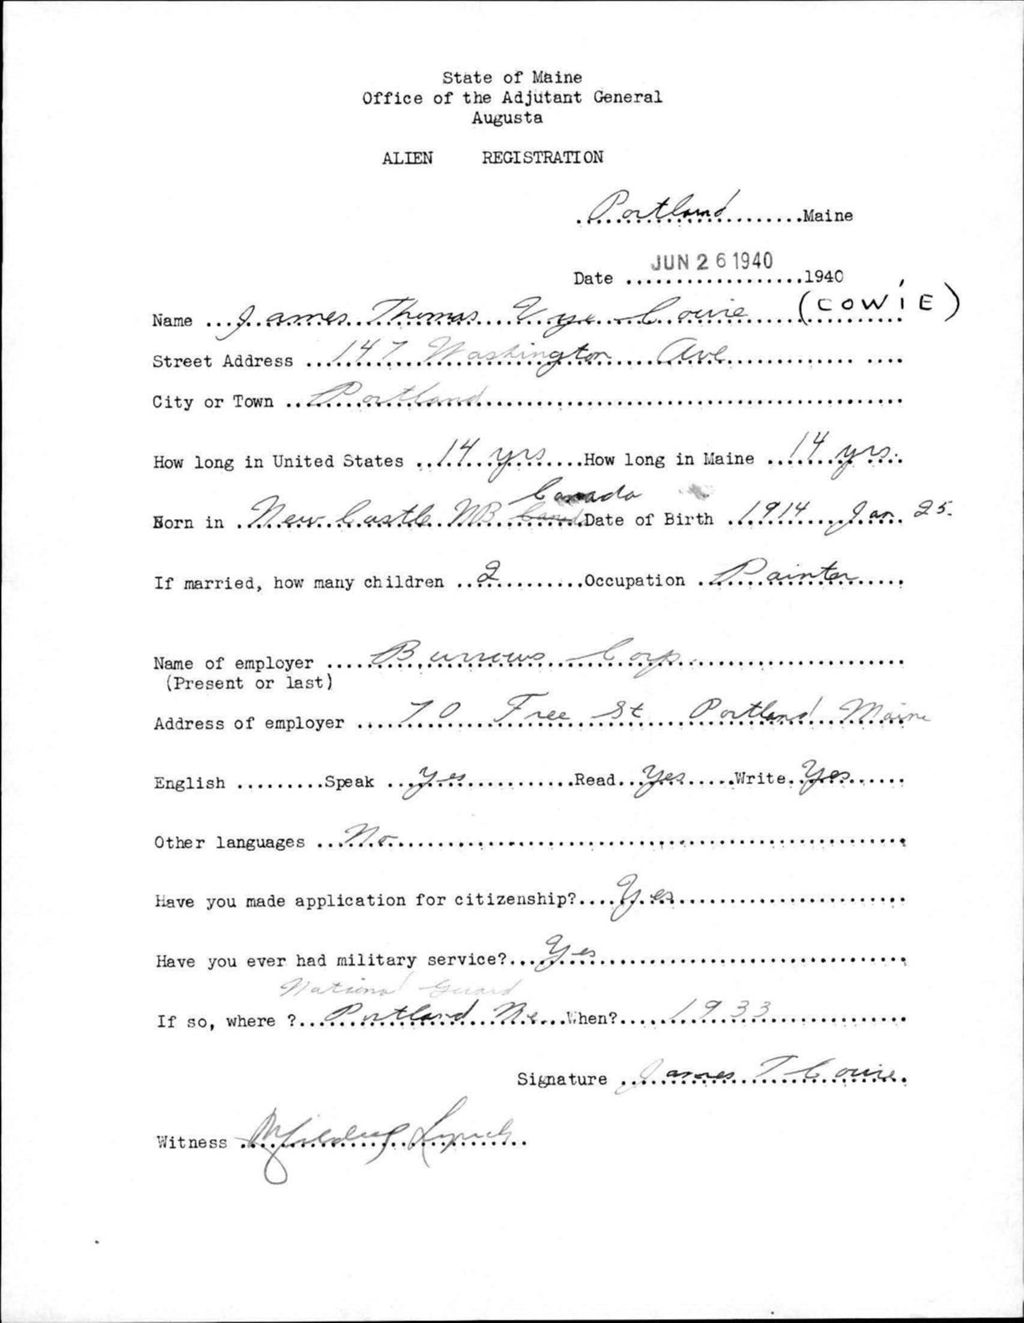 State of Maine
Office of the Adjutant General
Augusta
ALIEN REGISTRATION
Portland Maine
Date JUN 26 1940 1940
Name James Thomas Vye Cowie (COWIE)
Street Address 147 Washington Ave
City or Town Portland
How long in United States 14 yrs How long in Maine 14 yrs.
Canada
Born in New Castle NB Can Date of Birth 1914 Jan. 25.
If married, how many children 2 Occupation Painter
Name of employer Burrows Corp.
(Present or last)
Address of employer 70 Free St Portland Maine
English Speak Yes Read Yes Write Yes
Other languages No
Have you made application for citizenship? Yes
Have you ever had military service? Yes
National Guard
If so, where ? Portland Me When? 1933
Signature James T Cowie
Witness Mildred Lynch